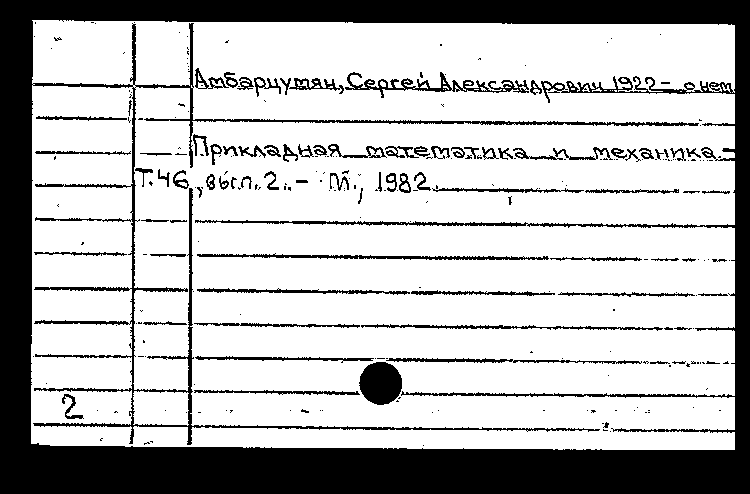 Амбарцумян, Сергей Александрович 1922 – о нем
Прикладная математика и механика. –
Т. 46, вып. 2. – М., 1982.
2